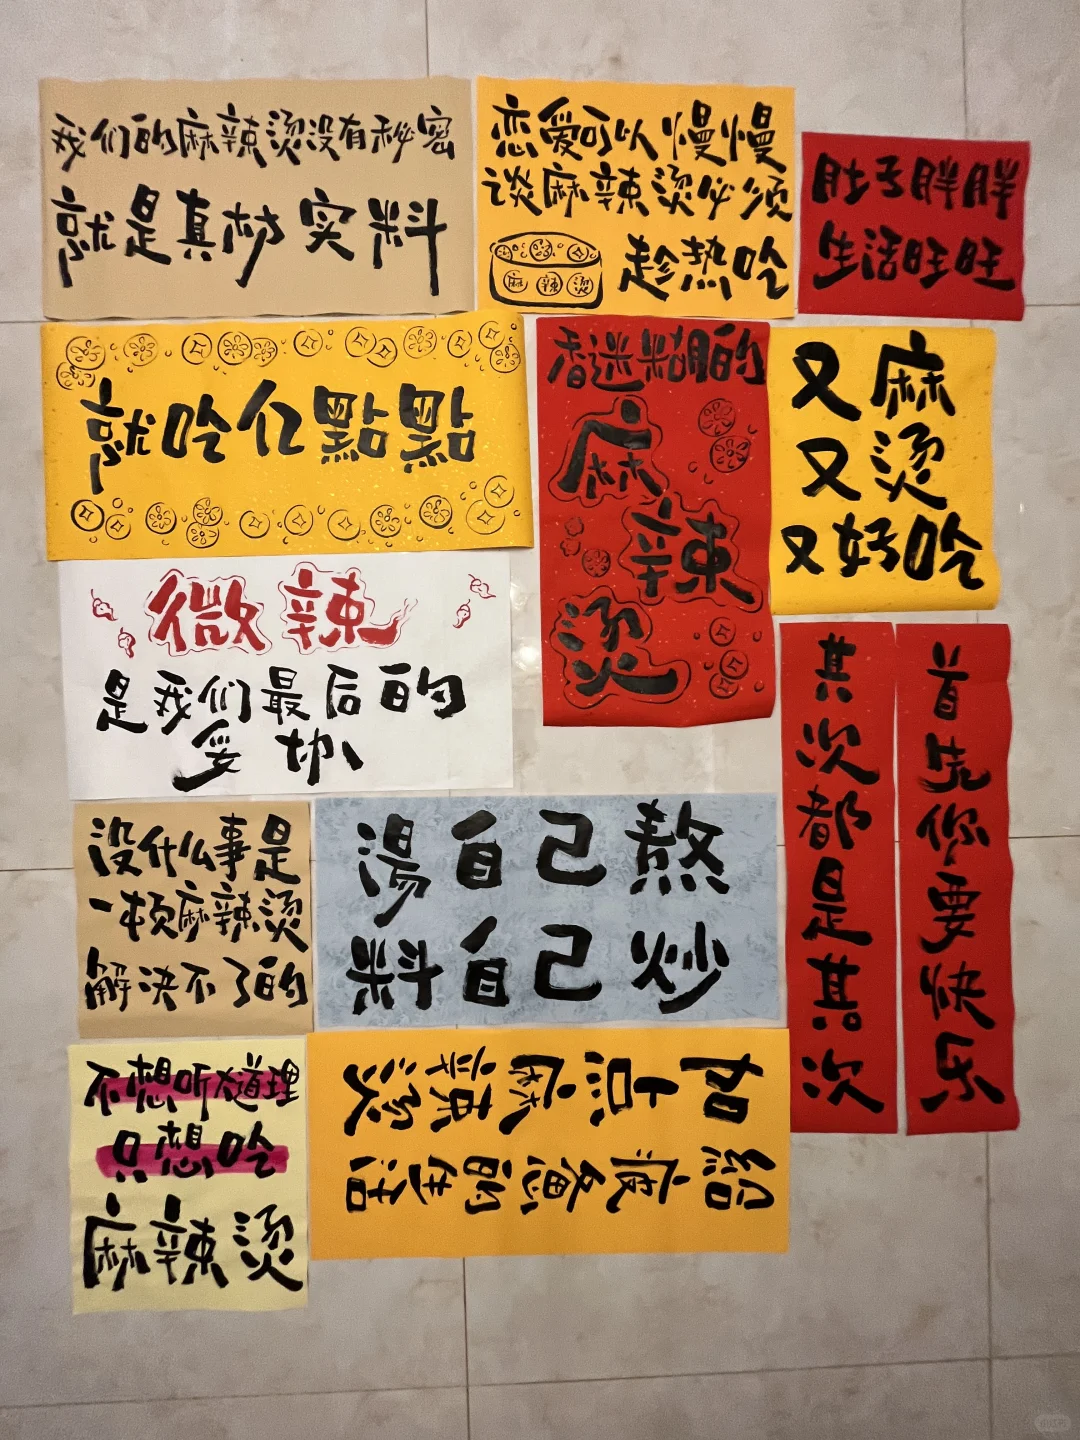 我们的麻辣烫没有秘密
就是真材实料
恋爱可以慢慢
谈麻辣烫必须
趁热吃
麻辣烫
肚子胖胖
生活旺旺
就吃亿點點
香迷糊的
麻
辣
烫
又麻
又烫
又好吃
微辣
是我们最后的
妥协
首先你要快乐
其次都是其次
没什么事是
一顿麻辣烫
解决不了的
湯自己熬
料自己炒
不想听大道理
只想吃
麻辣烫
给疲惫的生活
加点麻辣烫
小红书